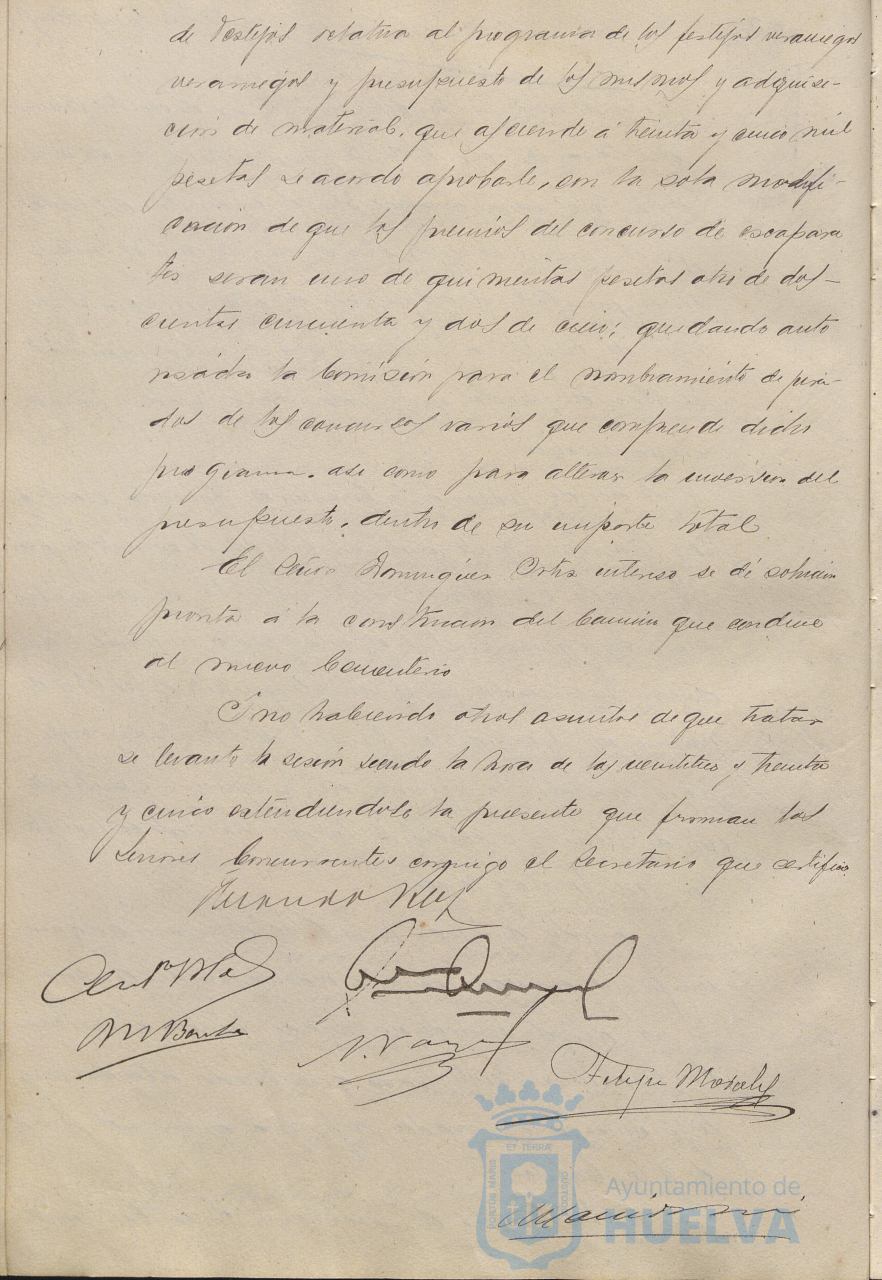 de Festejos relativa al programa de los festejos veraniegos
veraniegos y presupuesto de los mismos y adquisi-
cion de material, que asciende á treinta y cinco mil
pesetas se acordo aprobarle, con la sola modifi-
cacion de que los premios del concurso de escapara
tes seran uno de quinientas pesetas otro de dos-
cientas cincuenta y dos de cien; quedando auto
risada la Comisión para el nombramiento de jura-
dos de los concursos varios que comprende dicho
programa, asi como para alterar la inversion del
presupuesto, dentro de su importe total
El Señor Dominguez Ortiz intereso se dé solucion
pronta á la construccion del Camino que conduce
al nuevo Cementerio
Y no habiendo otros asuntos de que tratar
se levanto la sesión siendo la hora de las veintitres y treinta
y cinco extendiendose la presente que firman los
Señores Concurrentes conmigo el Secretario que certifico
Felipe Morales
PORTUS MARIS
ET TERRÆ
CUSTODIA
Ayuntamiento de
HUELVA